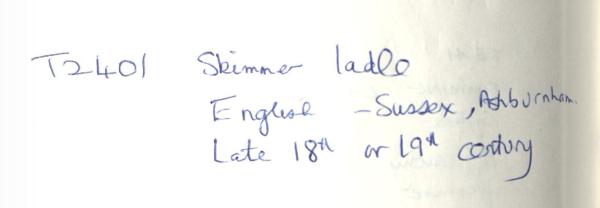 T2401 Skimmer ladle
English - Sussex, Ashburnham.
Late 18th or 19th century